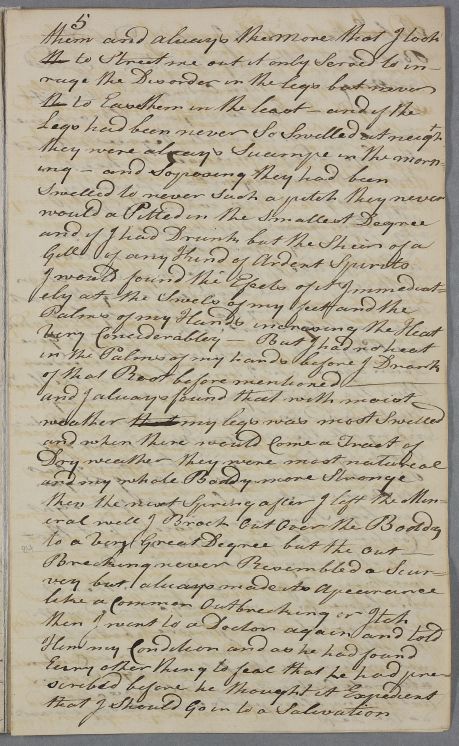 5
them and always the more that I took
th to Street me out it only Served to in-
rage the Disorder in the Legs but never
th to Ease them in the least – and if the
Legs had been never So Swelled at neigh
they were always Sucumpe in the morn-
ing – and Soposing they had been
Swelled to never Such a pitch they never
would a Pitted in the Smallest Degree
and if I had Drunk but the of a
Gill of any Kind of Ardent Spirits
I would found the Efects of it Immediat-
ely at the of my feet and the
Palms of my Hands increasing the Heat
Very Conciderabley – But I had no heat
in the Palms of my hands before I Drank
of that Root before mentioned
and I always found that with moist
weather that my legs was most Swelled
and when there would Come a Tract of
Dry weather they were most natureal
and my whole Boddy more Strange
then the next Spring after I left the Min-
eral well I Broch Out Over the Boddy
to a Very Great Degree but the out
Brechking never Resembled a Scur-
vey but always made its Apeearance
like a Common Outbreching or Itch
then I went to a Doctor again and told
Him my Condition and as he had found
Every other thing to feal that he had pre-
scribed before he thought it Expedient
that I Should Go in to a Salivation